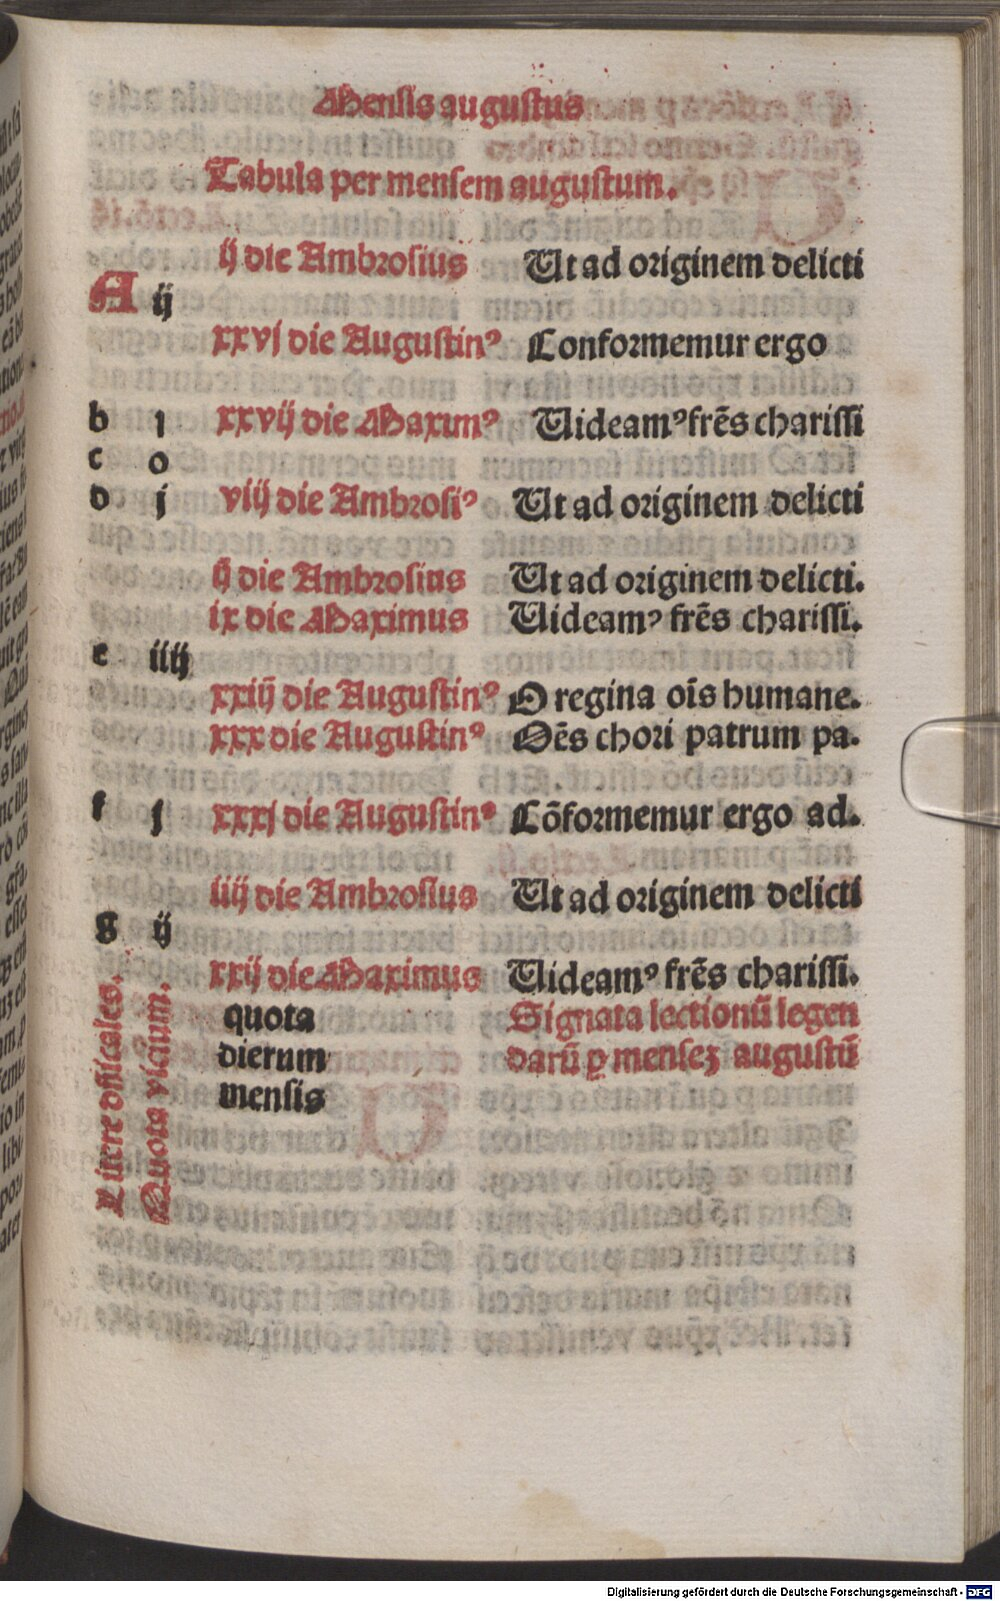 Mensis augustus
Tabula per mensem augustum.
ij die Ambrosius Ut ad originem delicti
A ij
xxvj die Augustinꝰ Conformemur ergo
b j xxvij die Maximꝰ Uideamꝰ frēs charissi
c o
d j viij die Ambrosiꝰ Ut ad originem delicti
ij die Ambrosius Ut ad originem delicti.
ix die Maximus Uideamꝰ frēs charissi.
e iiij
xxiij die Augustinꝰ O regina oīs humane.
xxx die Augustinꝰ Oēs chori patrum pa.
f j xxxj die Augustinꝰ Cōformemur ergo ad.
iiij die Ambrosius Ut ad originem delicti
g ij
xxij die Maximus Uideamꝰ frēs charissi.
quota Signata lectionū legen
dierum darū ꝑ menseꝫ augustū
mensis
Litere dñicales.
Quota vicium.
Digitalisierung gefördert durch die Deutsche Forschungsgemeinschaft - DFG